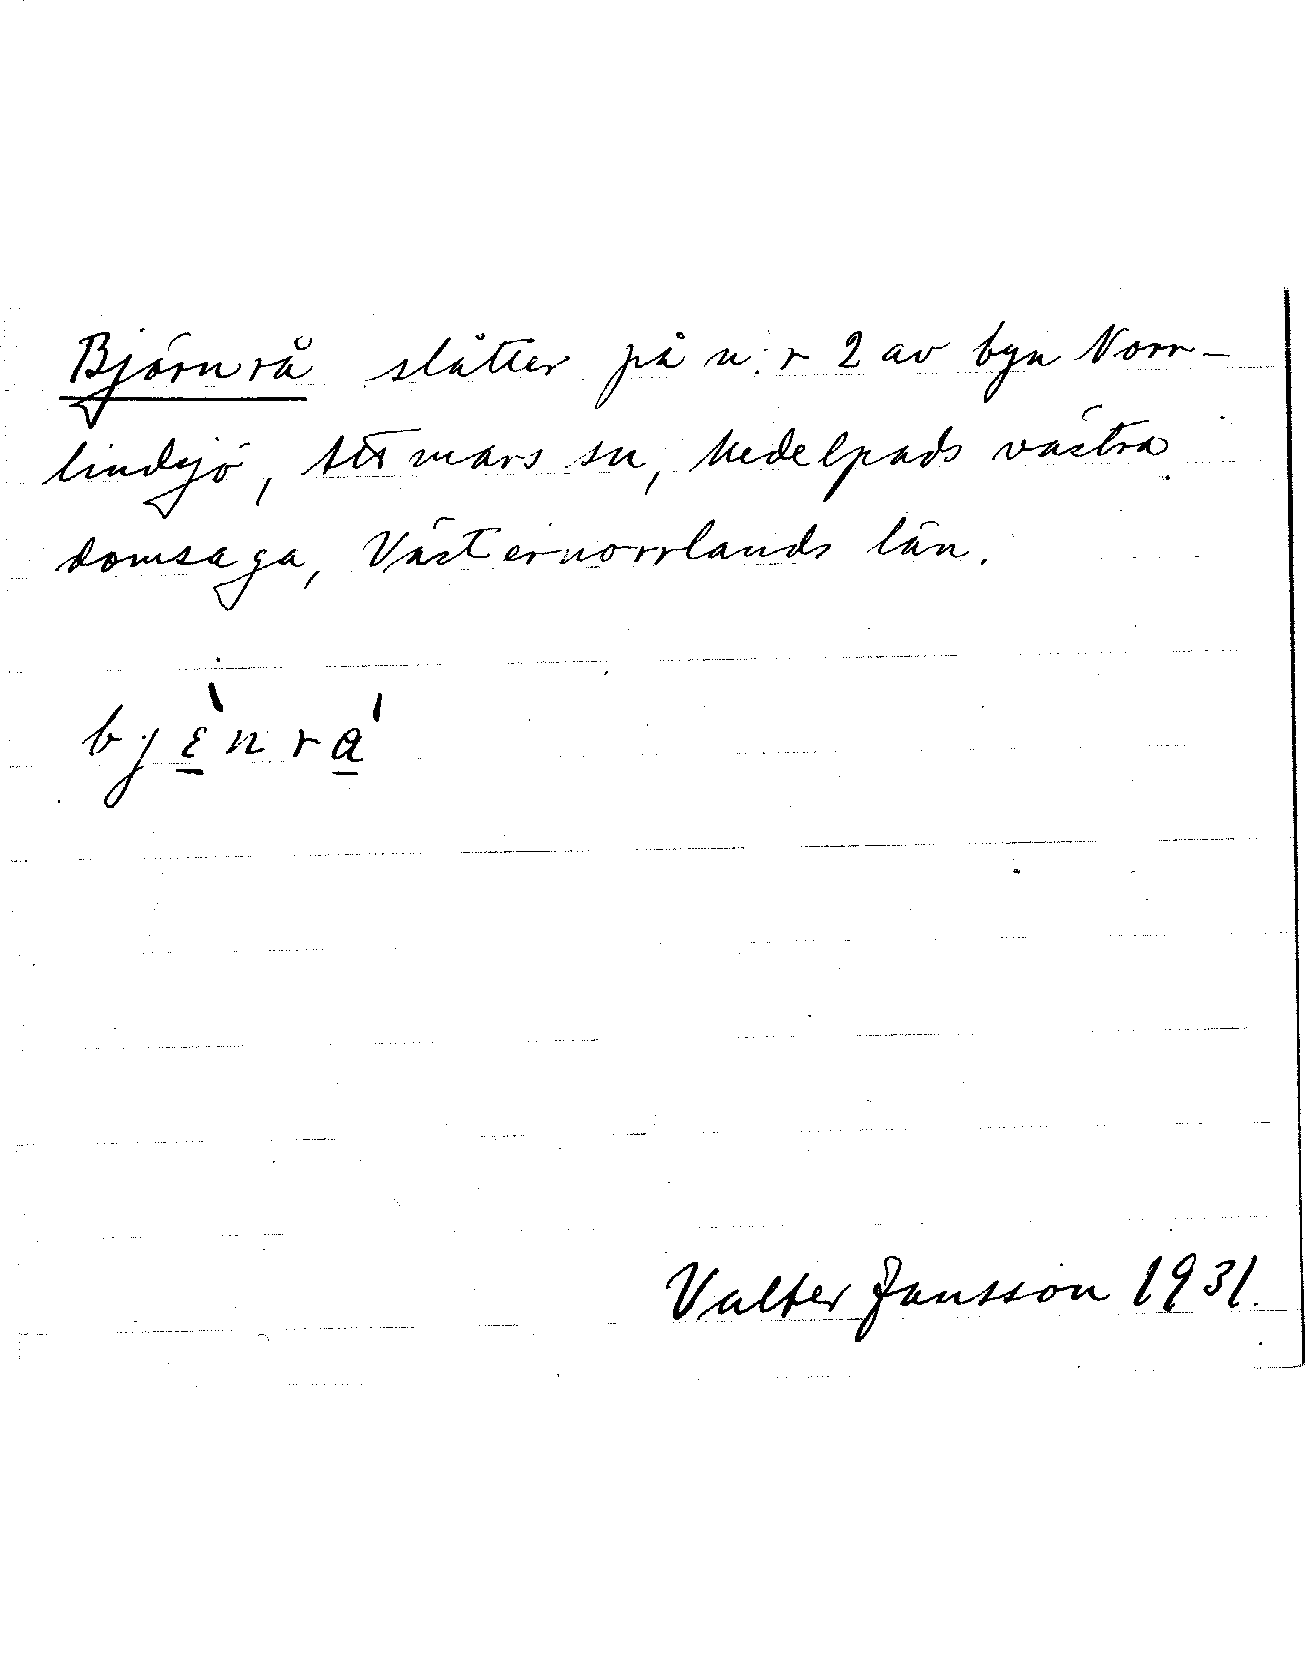 Björnrå slåtter på n:r 2 av byn Norr-
lindsjö, Attmars sn, Medelpads västra
domsaga, Västernorrlands län.
bjɛ̀nrá
Valter Jansson 1931.